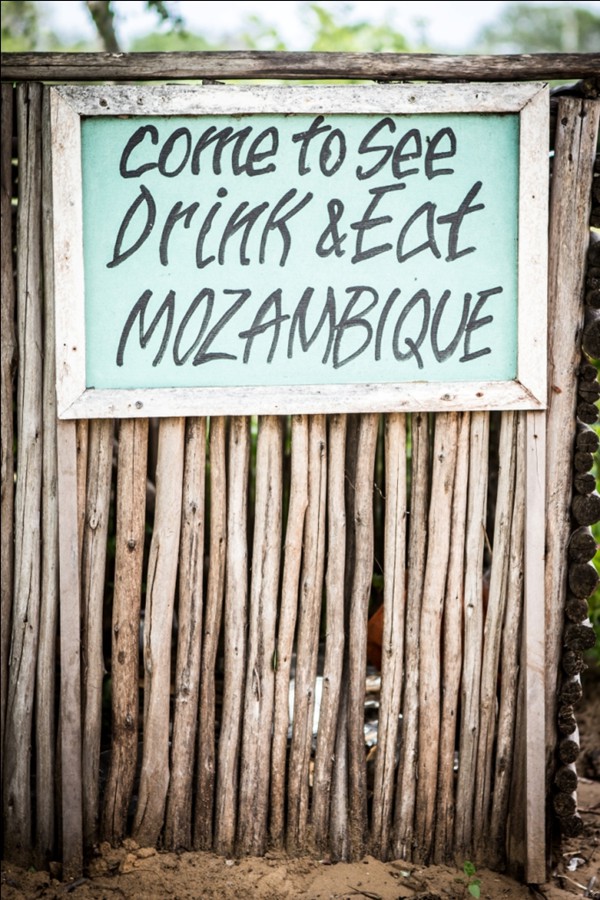 come to See
Drink & Eat
MOZAMBIQUE